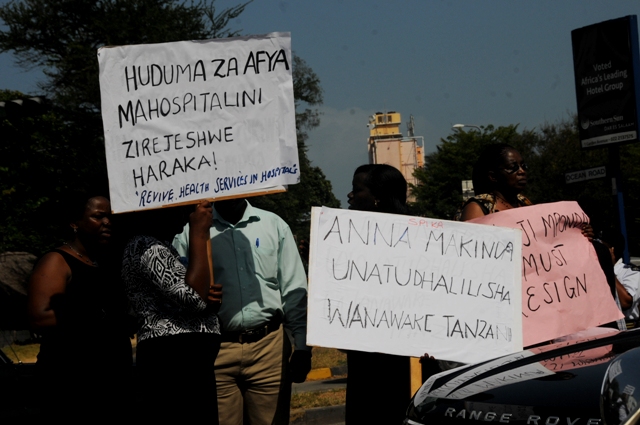 HUDUMA ZA AFYA
MAHOSPITALINI
ZIREJESHWE
HARAKA!
"REVIVE HEALTH SERVICES IN HOSPITALS
SPIKA
ANNA MAKINDA
UNATUDHALILISHA
WANAWAKE TANZANI
MPONDA
MUST
RESIGN
Voted
Africa's Leading
Hotel Group
Southern Sun
OCEAN ROAD
RANGE ROVE